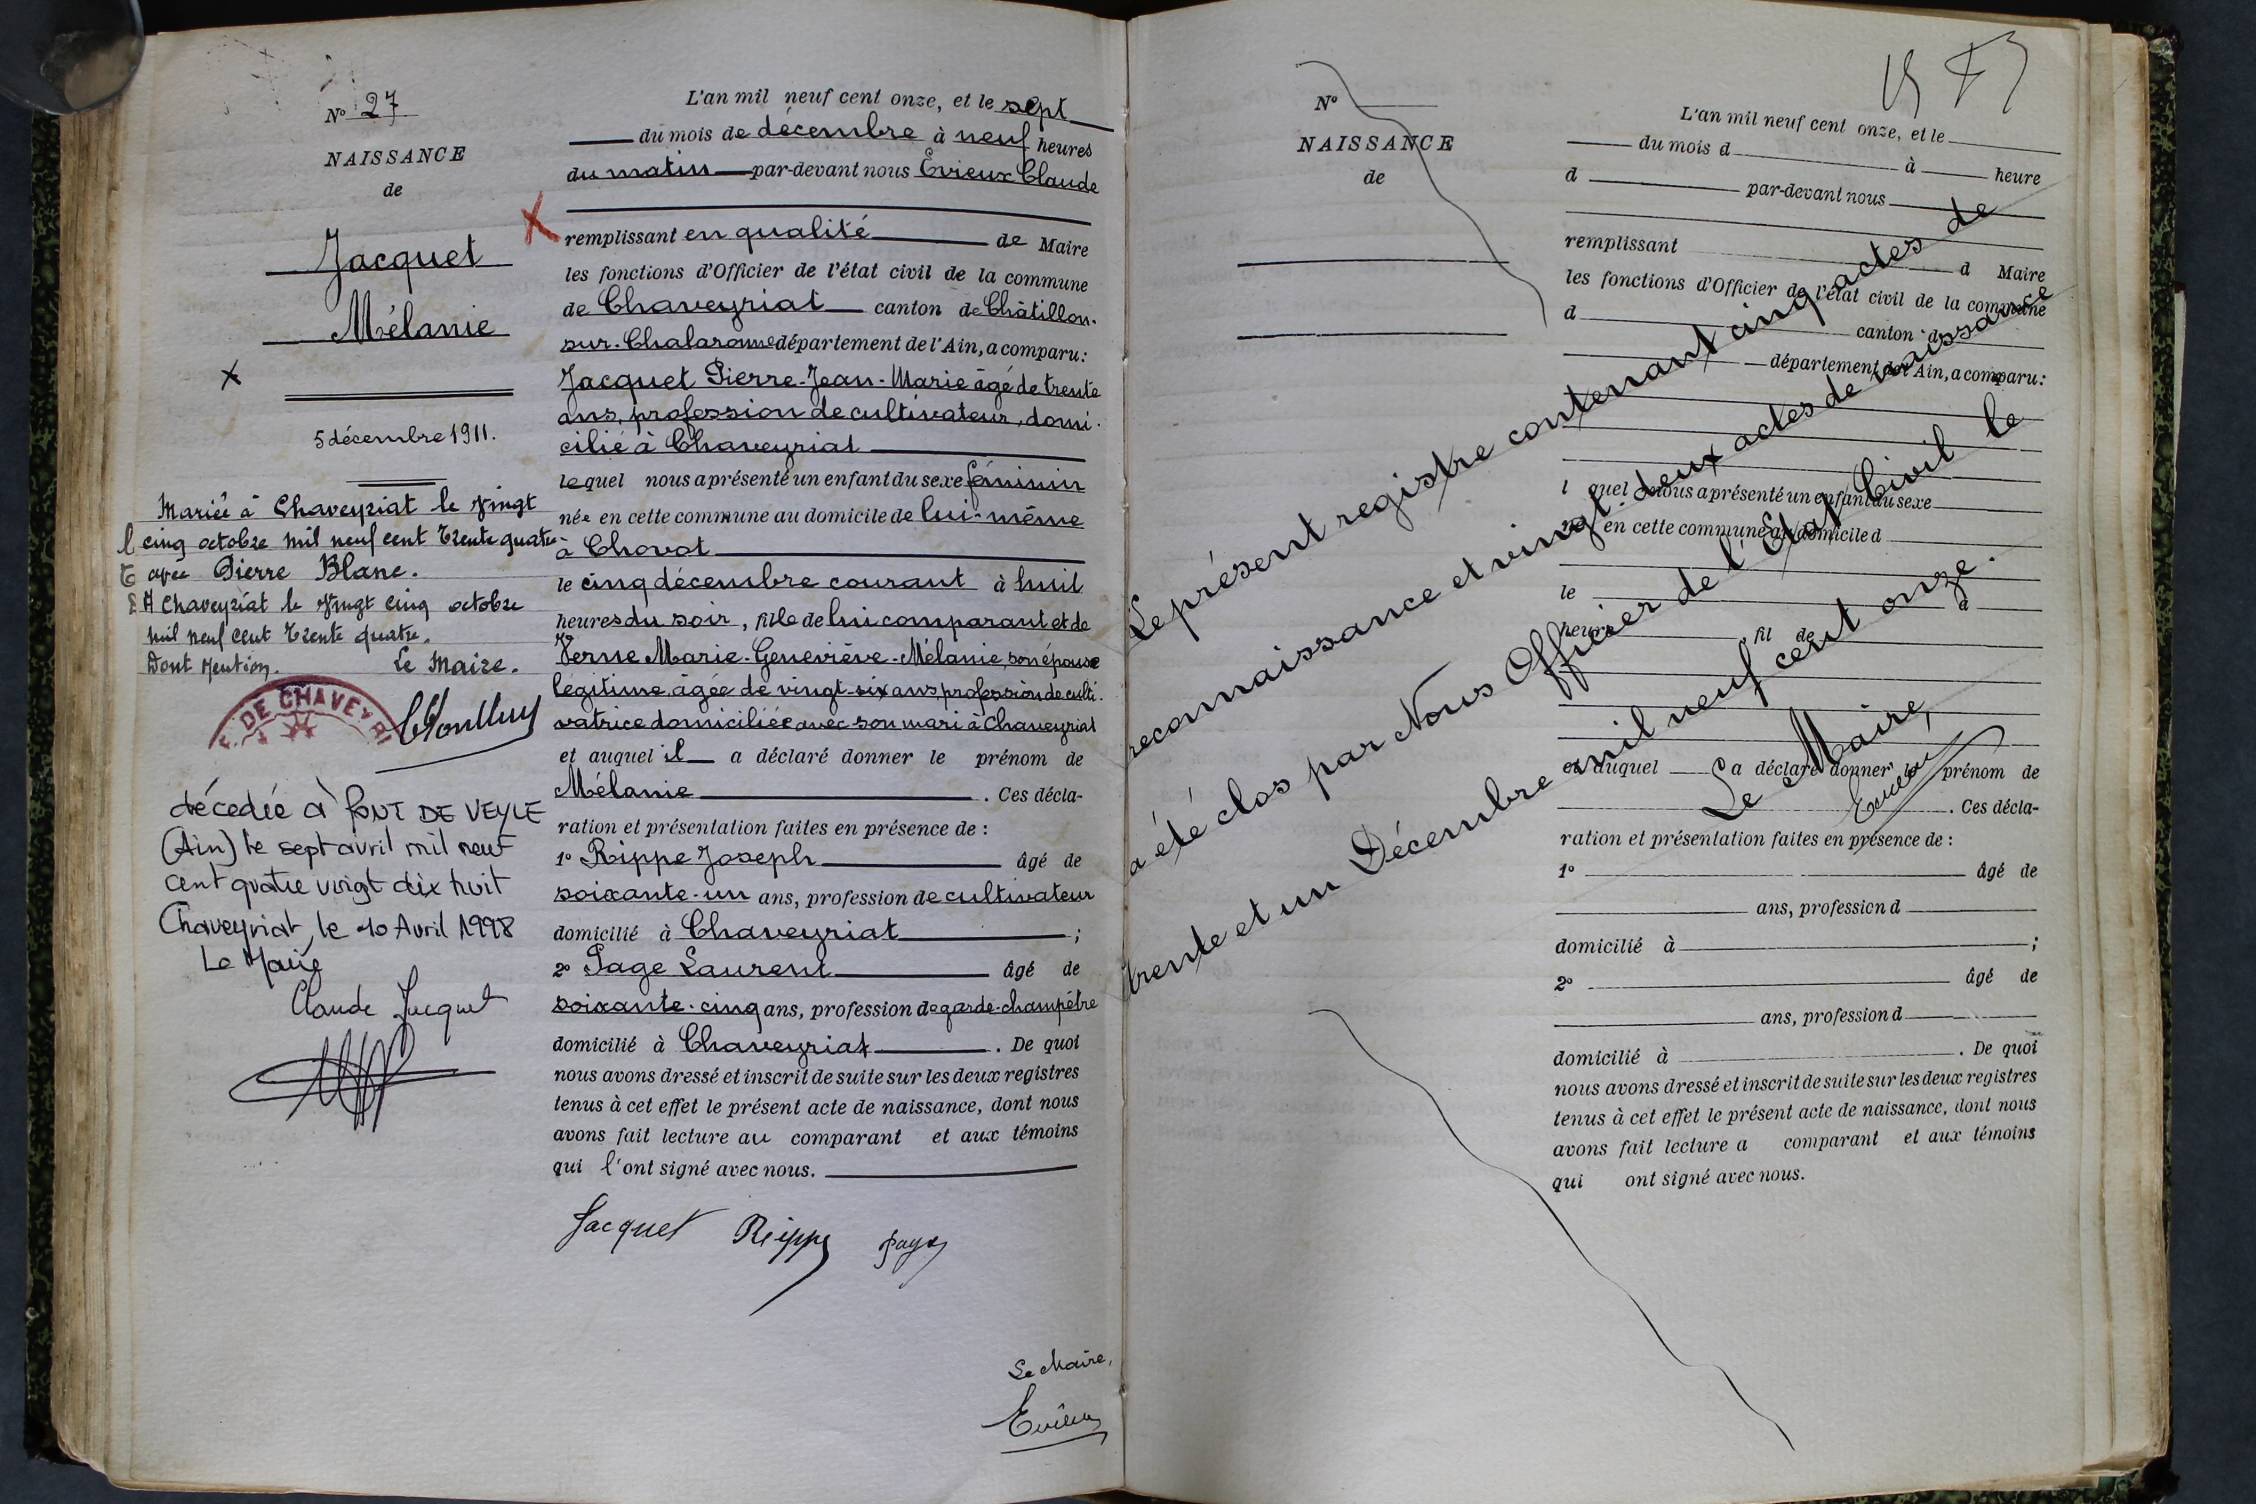 N° 27
NAISSANCE
de
Jacquet
Mélanie
5 décembre 1911.
Mariée à Chaveyriat le vingt
cinq octobre mil neuf cent trente quatre
avec Pierre Blanc.
A Chaveyriat le vingt cinq octobre
mil neuf cent trente quatre.
Dont mention. Le Maire.
DE CHAVEYRI
décedée à PONT DE VEYLE
(Ain) le sept avril mil neuf
cent quatre vingt dix huit
Chaveyriat, le 10 Avril 1998
Le Maire
Claude Jacquet
L'an mil neuf cent onze, et le sept
du mois de décembre à neuf heures
du matin par-devant nous Evieux Claude
remplissant en qualité de Maire
les fonctions d'Officier de l'état civil de la commune
de Chaveyriat canton de Châtillon-
sur-Chalaronne département de l'Ain, a comparu:
Jacquet Pierre-Jean-Marie âgé de trente
ans, profession de cultivateur, domi-
cilié à Chaveyriat
lequel nous a présenté un enfant du sexe féminin
née en cette commune au domicile de lui-même
à Chovot
le cinq décembre courant à huit
heures du soir, fille de lui comparant et de
Verne Marie-Geneviève-Mélanie, son épouse
légitime, âgée de vingt-six ans, profession de culti-
vatrice domiciliée avec son mari à Chaveyriat
et auquel il a déclaré donner le prénom de
Mélanie. Ces décla-
ration et présentation faites en présence de :
1° Rippe Joseph âgé de
soixante-un ans, profession de cultivateur
domicilié à Chaveyriat ;
2° Page Laurent âgé de
soixante-cinq ans, profession de garde-champêtre
domicilié à Chaveyriat. De quoi
nous avons dressé et inscrit de suite sur les deux registres
tenus à cet effet le présent acte de naissance, dont nous
avons fait lecture au comparant et aux témoins
qui l'ont signé avec nous.
Jacquet Rippe Page
Le Maire,
Evieux
N°
NAISSANCE
de
L'an mil neuf cent onze, et le
du mois d à heure
d par-devant nous
remplissant d Maire
les fonctions d'Officier de l'état civil de la commune
d canton d
département de l'Ain, a comparu:
l quel nous a présenté un enfant du sexe
né en cette commune au domicile d
le à
heure , fil de
et auquel a déclaré donner le prénom de
. Ces décla-
ration et présentation faites en présence de :
1° âgé de
ans, profession d
domicilié à ;
2° âgé de
ans, profession d
domicilié à . De quoi
nous avons dressé et inscrit de suite sur les deux registres
tenus à cet effet le présent acte de naissance, dont nous
avons fait lecture a comparant et aux témoins
qui ont signé avec nous.
Le présent registre contenant cinq actes de
reconnaissance et vingt-deux actes de naissance
a été clos par Nous Officier de l'Etat Civil le
trente et un Décembre mil neuf cent onze.
Le Maire,
Evieux